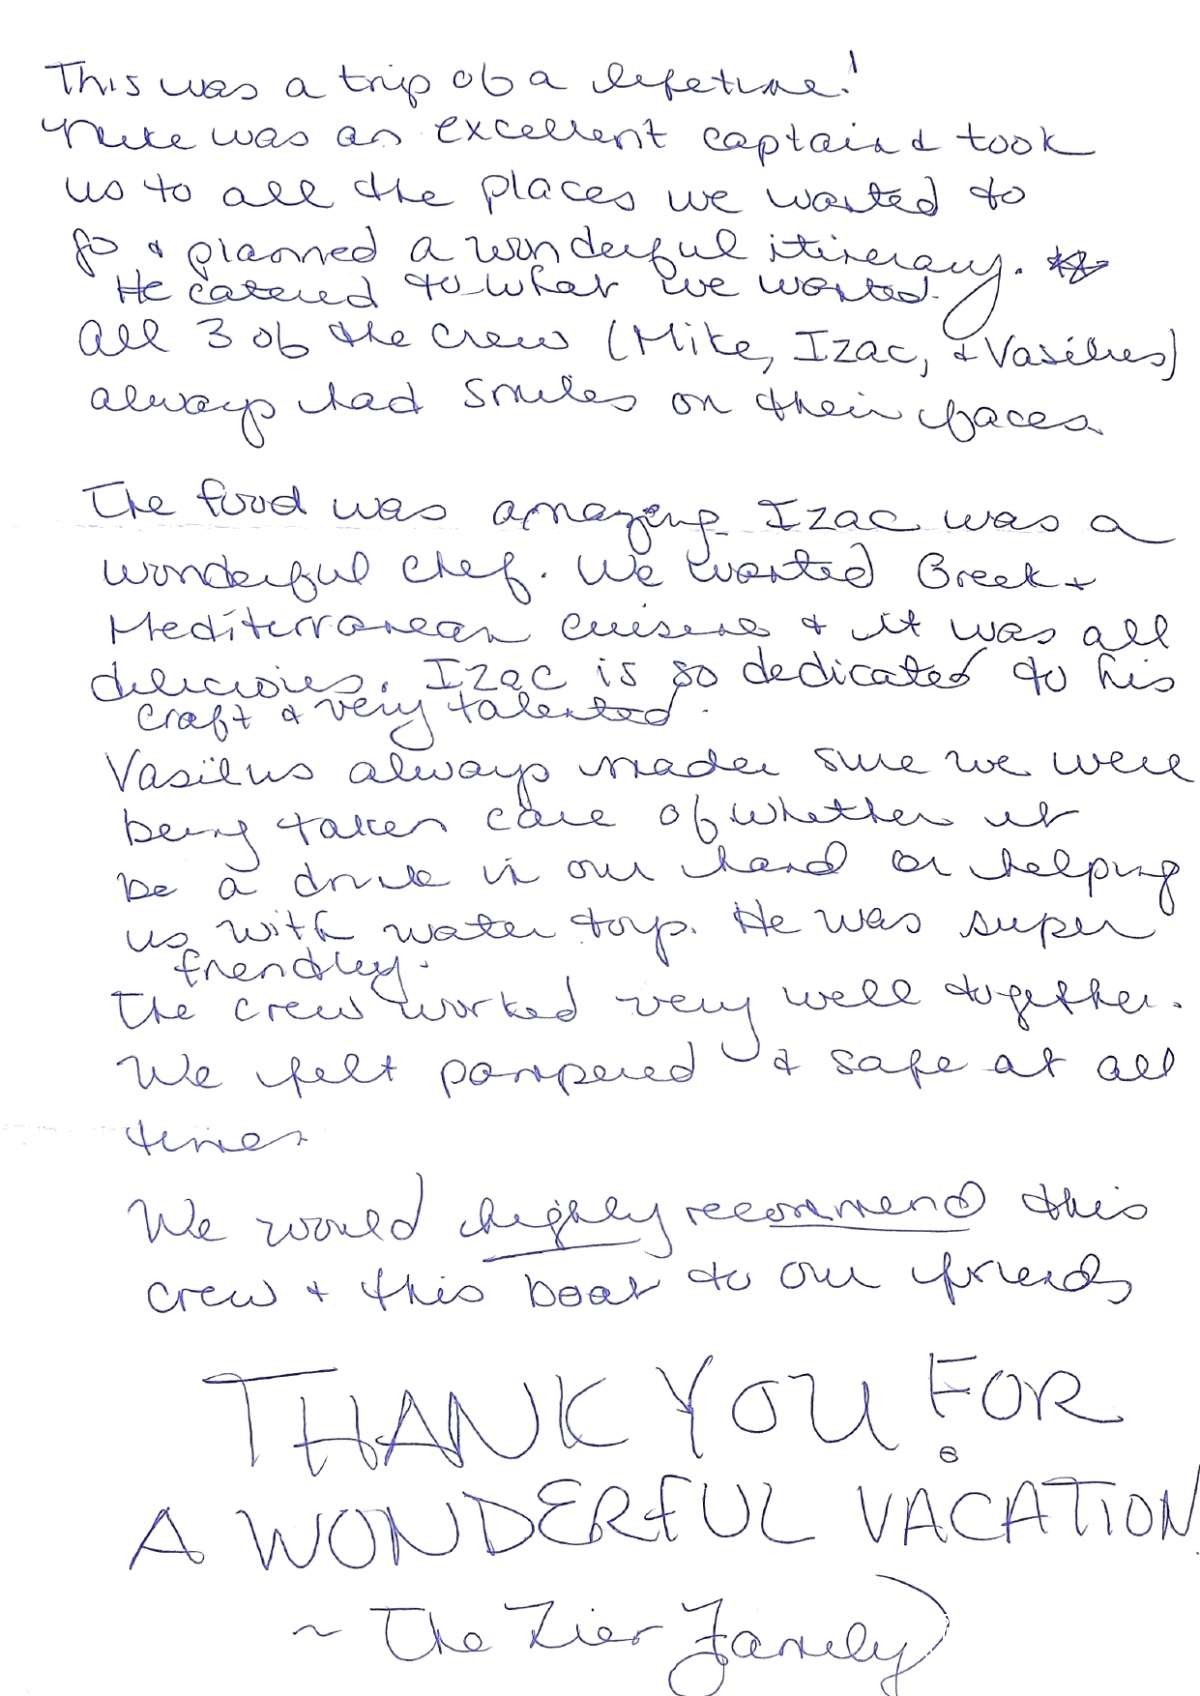 This was a trip of a lifetime!
Mike was an excellent captain & took
us to all the places we wanted to
go & planned a wonderful itinerary.
He catered to what we wanted.
All 3 of the crew (Mike, Izac, & Vasilius)
always had smiles on their faces.
The food was amazing. Izac was a
wonderful chef. We wanted Greek &
Mediterranean cuisine & it was all
delicious. Izac is so dedicated to his
craft & very talented.
Vasilius always made sure we were
being taken care of whether it
be a drink in our hand or helping
us with water toys. He was super
friendly.
The crew worked very well together.
We felt pampered & safe at all
times.
We would highly recommend this
crew & this boat to our friends
THANK YOU FOR
A WONDERFUL VACATION.
~ The Zier Family